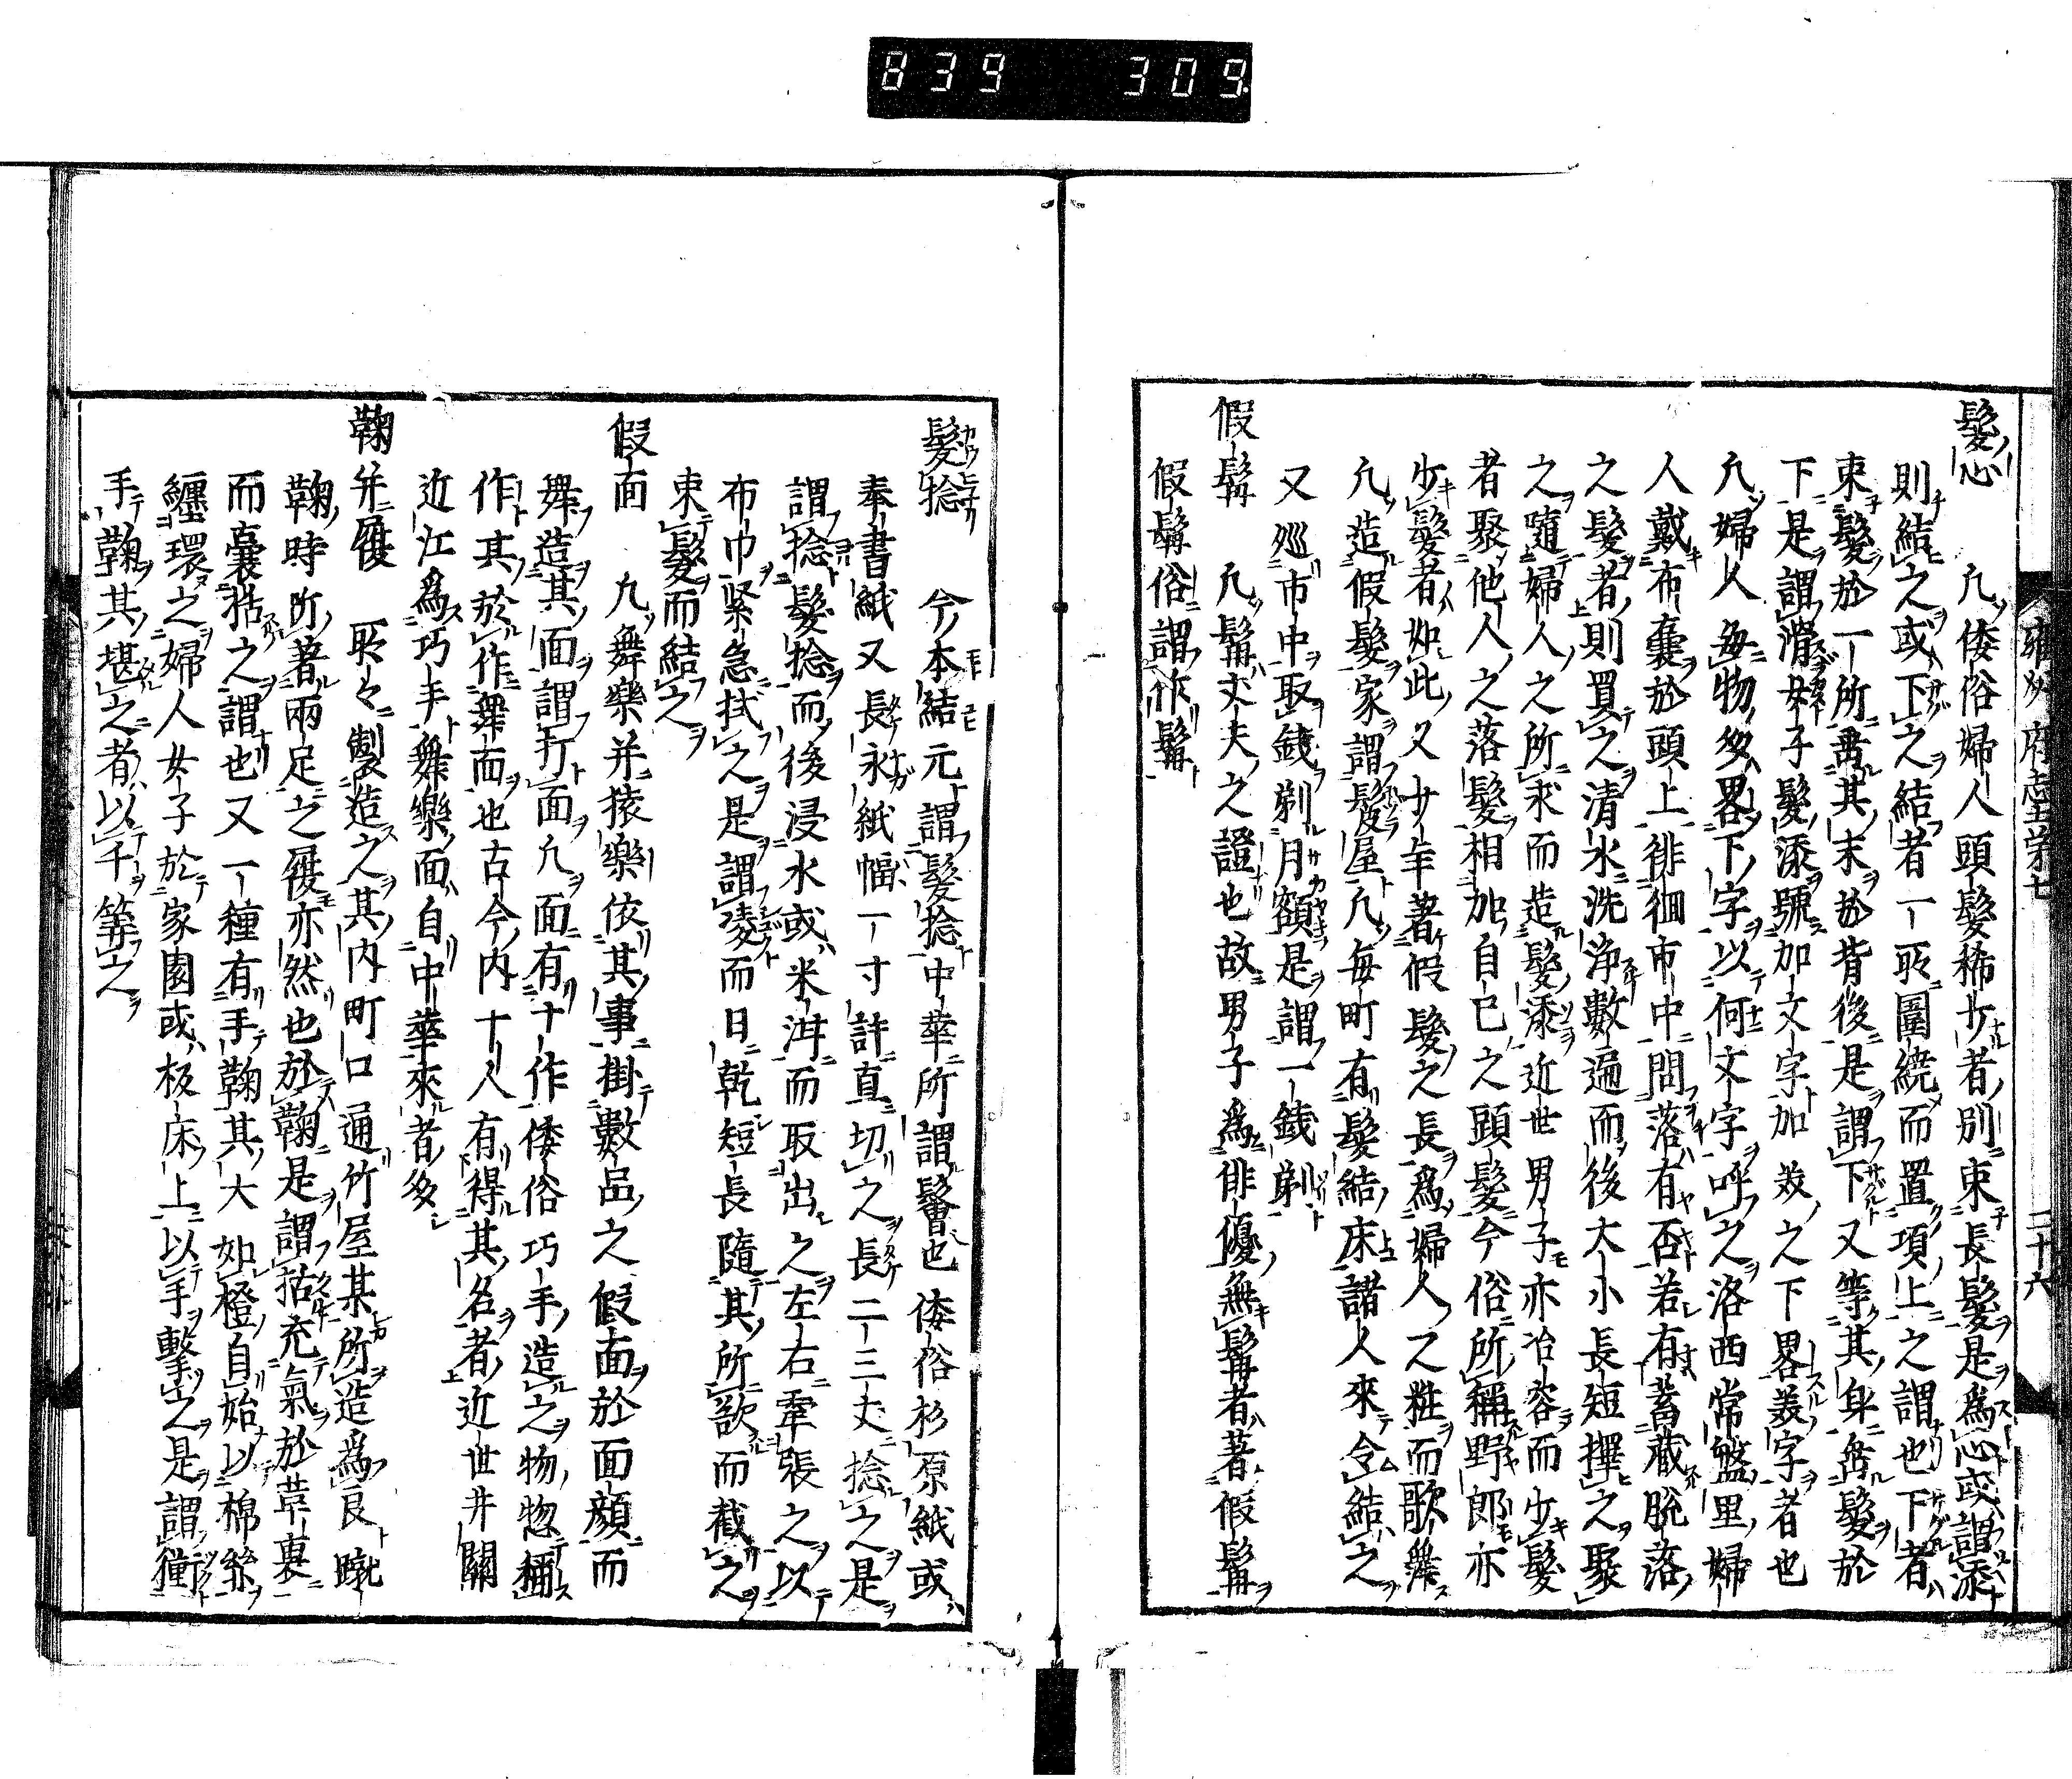 839 309
雍州府志第七 二十六
髮心 凡倭俗婦人頭髮稀少者別束長髮是爲心或謂添
則結之或下之結者一所圍繞而置項上之謂也下者
束髮於一所畨其末於背後是謂下又等其身畨髮於
下是謂滑女子髮添號加文字加美之下畧美字者也
凡婦人每物多畧下字以何文字呼之洛西常盤里婦
人戴布囊於頭上徘徊市中問落有否若有蓄藏脫落
之髮者則買之清水洗淨數遍而後大小長短擇之聚
之隨婦人之所求而造髮添近世男子亦冶容而少髮
者聚他人之落髮相加自己之頭髮今俗所稱野郎亦
少髮者如此又廿年著假髮之長爲婦人之粧而歌舞
凡造假髮家謂髲屋凡每町有髮結床諸人來令結之
又廵市中取錢剃月額是謂一錢剃
假髯 凡髯丈夫之證也故男子爲俳優無髯者著假髯
假髯俗謂作髯
髮捻 今本結元謂髮捻中華所謂鬠也倭俗杉原紙或
奉書紙又長永紙幅一寸許直切之長二三丈捻之是
謂捻髮捻而後浸水或米泔而取出之左右牽張之以
布巾緊急拭之是謂凌而日乾短長隨其所欲而截之
束髮而結之
假面 凡舞樂并猿樂依其事掛數品之假面於面顏而
舞造其面謂打面凡面有十作倭俗巧手造之物惣稱
作其於作舞面也古今内十人有得其名者近世井關
近江爲巧手舞樂面自中華來者多
鞠并屨 所々製造之其内町口通竹屋某所造爲良蹴
鞠時所著兩足之屨亦然也於鞠是謂括充氣於葦裏
而囊括之謂也又一種有手鞠其大如橙自始以棉絲
纒環之婦人女子於家園或板床上以手擊之是謂衝
手鞠其堪之者以千等之